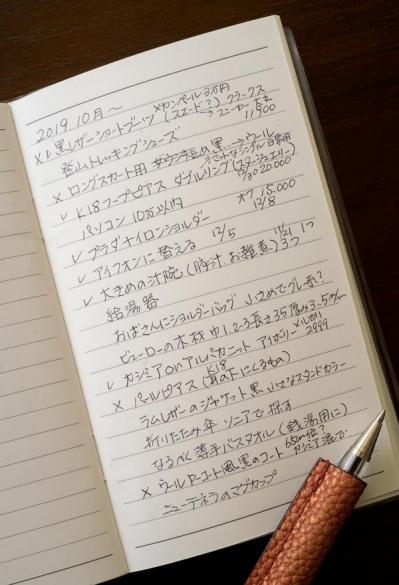 2019 10月～
×カンペール 3万円
×✓黒レザーショートブーツ (スエード?) クラークス
スニーカー 大丸 11,900
登山トレッキングシューズ
×ロングスカート用 黒…→ウール
✓K18フープピアス ダブルリング(スタージュエリー)
20.000
パソコン 10万以内
✓プラダナイロンショルダー オフ 15.000
12/8
✓アイフォンに替える 12/5
✓大きめの汁腕(豚汁、お雑煮) 3つ
11/21 1つ
給湯器
おばさんにショルダーバッグ 小さめでグレー系?
ビューローの木材 巾1.2-3長さ35厚み3-5㎜
✓カシミアonアルパカニット アイボリー メルカリ 2999
×パールピアス K18(耳の下にくるもの)
ラムレザーのジャケット黒 小さなスタンドカラー
折りたたみ傘 ソニアで探す
なるべく薄手バスタオル(銭湯用に)
×ウールPコート風黒のコート カシミア混で
ニューテネラのマグカップ